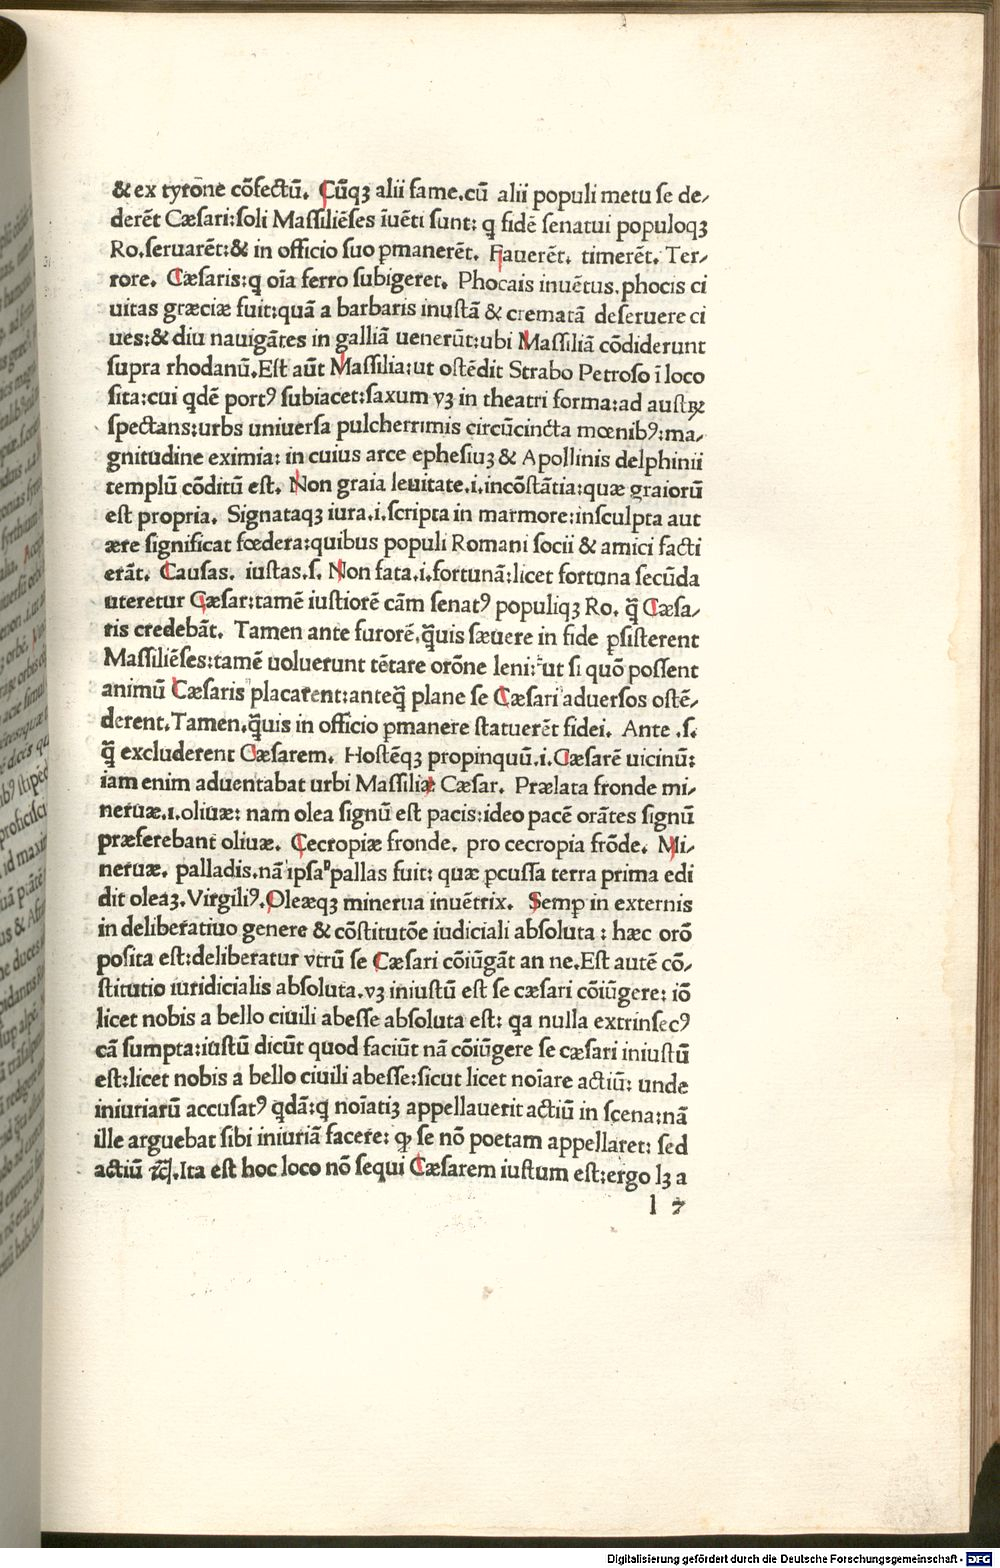 & ex tyrõne cõfectũ. Cũqꝫ alii fame.cũ alii populi metu ſe de⸗
derẽt Cæſari:ſoli Maſſiliẽſes iuẽti ſunt: ꝙ fidẽ ſenatui populoqꝫ
Ro.ſeruarẽt:& in officio ſuo ꝑmanerẽt. Fauerẽt. timerẽt. Ter⸗
rore. Cæſaris:ꝙ oĩa ferro ſubigeret. Phocais inuẽtus.phocis ci
uitas græciæ fuit:quã a barbaris inuſtã & crematã deſeruere ci
ues:& diu nauigãtes in galliã uenerũt:ubi Maſſiliã cõdiderunt
ſupra rhodanũ.Eſt aũt Maſſilia:ut oſtẽdit Strabo Petroſo ĩ loco
ſita:cui qdẽ portꝰ ſubiacet:ſaxum vꝫ in theatri forma:ad auſtꝝ
ſpectans:urbs uniuerſa pulcherrimis circũcincta mœnibꝰ:ma⸗
gnitudine eximia: in cuius arce epheſiuꝫ & Apollinis delphinii
templũ cõditũ eſt. Non graia leuitate.i.incõſtãtia:quæ graiorũ
eſt propria. Signataqꝫ iura.i.ſcripta in marmore:inſculpta aut
ære ſignificat fœdera:quibus populi Romani ſocii & amici facti
erãt. Cauſas. iuſtas.ſ. Non fata.i.fortunã:licet fortuna ſecũda
uteretur Cæſar:tamẽ iuſtiorẽ cãm ſenatꝰ populiqꝫ Ro. q̃ Cæſa⸗
ris credebãt. Tamen ante furorẽ.q̃uis ſæuere in fide ꝑſiſterent
Maſſiliẽſes:tamẽ uoluerunt tẽtare orõne leni: ut ſi quõ poſſent
animũ Cæſaris placarent:anteq̃ plane ſe Cæſari aduerſos oſtẽ⸗
derent.Tamen.q̃uis in officio ꝑmanere ſtatuerẽt fidei. Ante .ſ.
q̃ excluderent Cæſarem. Hoſtẽqꝫ propinquũ.i.Cæſarẽ uicinũ:
iam enim aduentabat urbi Maſſiliæ Cæſar. Prælata fronde mi⸗
neruæ.i.oliuæ: nam olea ſignũ eſt pacis:ideo pacẽ orãtes ſignũ
præferebant oliuæ. Cecropiæ fronde. pro cecropia frõde. Mi⸗
neruæ. palladis.nã ipſa pallas fuit: quæ ꝑcuſſa terra prima edi
dit oleaꝫ.Virgiliꝰ.Oleæqꝫ minerua inuẽtrix. Semꝑ in externis
in deliberatiuo genere & cõſtitutõe iudiciali abſoluta : hæc orõ
poſita eſt:deliberatur vtrũ ſe Cæſari cõiũgãt an ne.Eſt autẽ cõ⸗
ſtitutio iuridicialis abſoluta.vꝫ iniuſtũ eſt ſe cæſari cõiũgere: iõ
licet nobis a bello ciuili abeſſe abſoluta eſt: qa nulla extrinſecꝰ
cã ſumpta:iuſtũ dicũt quod faciũt nã cõiũgere ſe cæſari iniuſtũ
eſt:licet nobis a bello ciuili abeſſe:ſicut licet noĩare actiũ: unde
iniuriarũ accuſatꝰ qdã:ꝙ noĩatiꝫ appellauerit actiũ in ſcena:nã
ille arguebat ſibi iniuriã facere: ꝙ ſe nõ poetam appellaret: ſed
actiũ Ita eſt hoc loco nõ ſequi Cæſarem iuſtum eſt:ergo lꝫ a
l 7
Digitalisierung gefördert durch die Deutsche Forschungsgemeinschaft - DFG